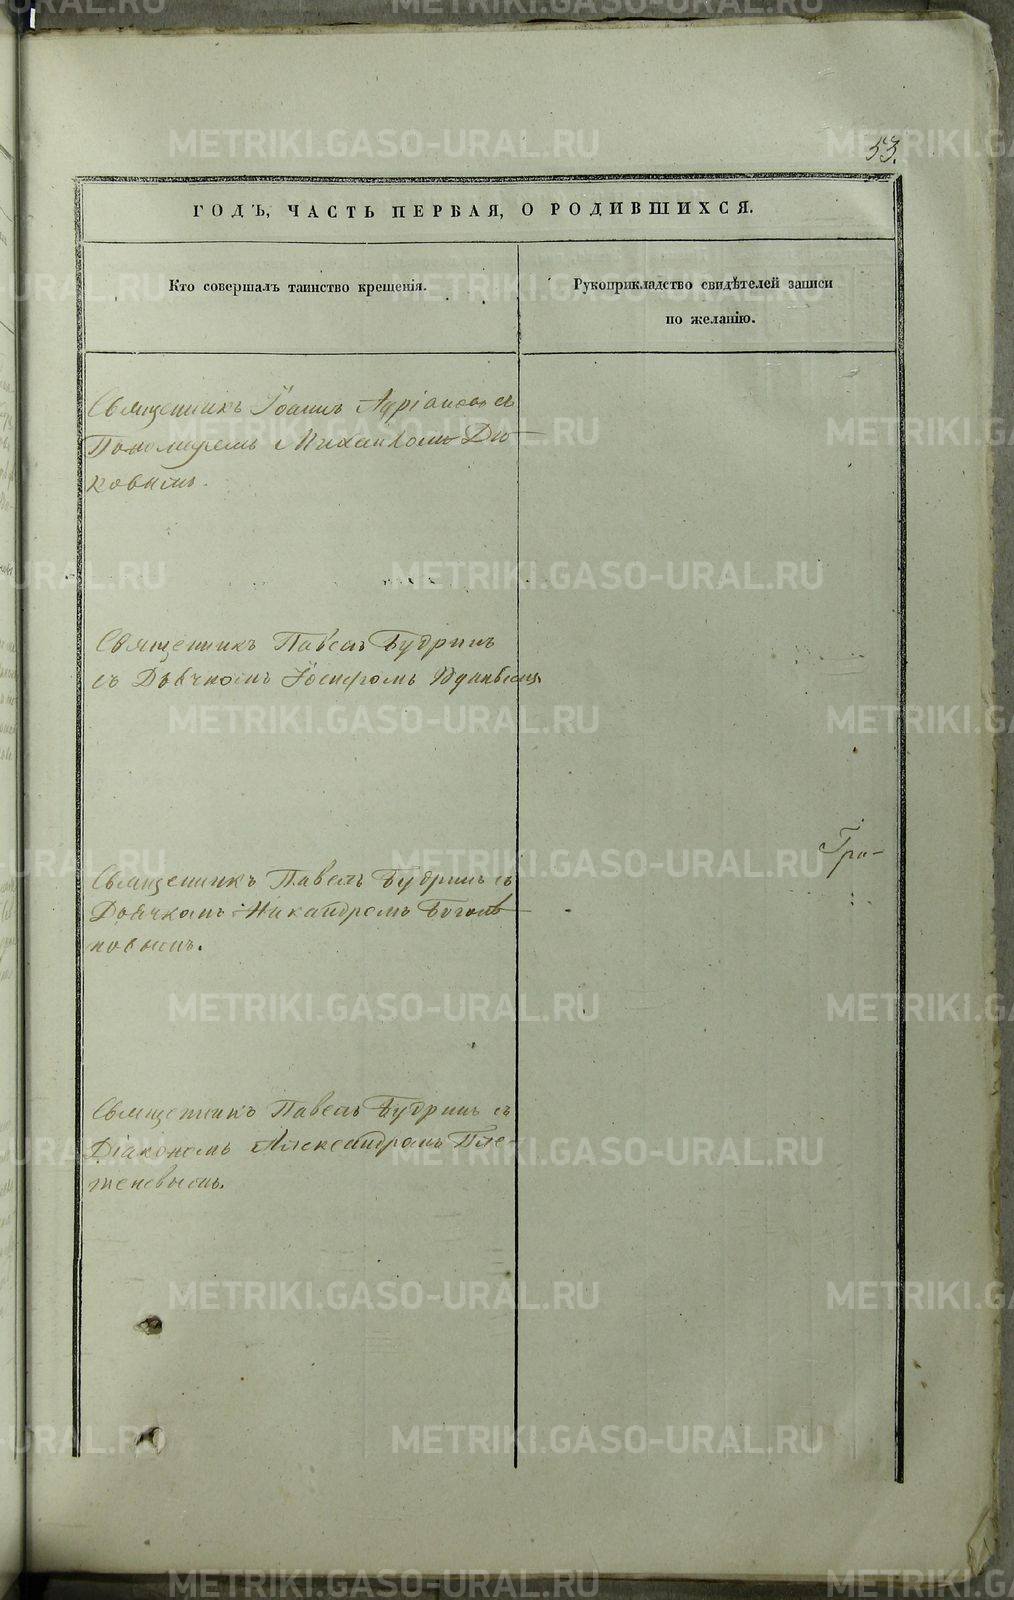 53.
ГОДЪ, ЧАСТЬ ПЕРВАЯ, О РОДИВШИХСЯ.
Кто совершалъ таинство крещенія.
Рукоприкладство свидѣтелей записи
по желанію.
Священникъ Іоаннъ Адріановъ съ
Пономаремъ Михаиломъ Дю-
ковымъ.
Священникъ Павелъ Будринъ
съ Дьячкомъ Іосифомъ
Священникъ Павелъ Будринъ съ
Дьячкомъ Никандромъ Боголѣ-
повымъ.
Гри-
Священникъ Павелъ Будринъ съ
Діакономъ Александромъ Пле-
теневымъ.
METRIKI.GASO-URAL.RU